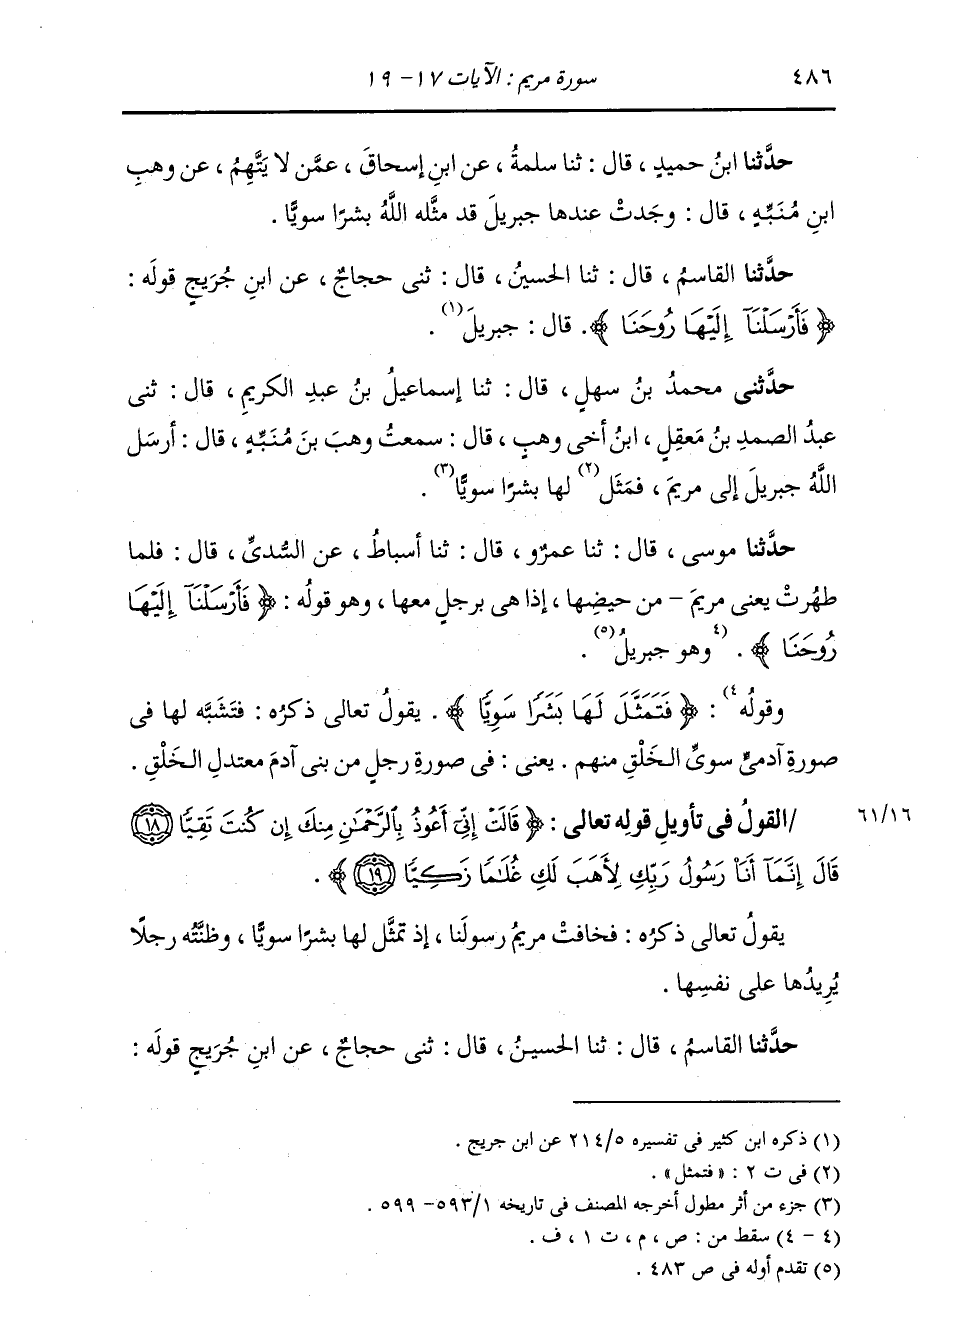 ٤٨٦ سورة مريم : الآيات ١٧ - ١٩
حدَّثنا ابنُ حميدٍ ، قال : ثنا سلمةُ ، عن ابنِ إسحاقَ ، عمَّن لا يَتَّهِمُ ، عن وهبِ
ابنِ مُنَبِّهٍ ، قال : وجَدتْ عندها جبريلَ قد مثَّله اللَّهُ بشرًا سويًّا .
حدَّثنا القاسمُ ، قال : ثنا الحسينُ ، قال : ثنى حجاجٌ ، عن ابنِ جُرَيجٍ قولَه :
﴿ فَأَرْسَلْنَآ إِلَيْهَا رُوحَنَا ﴾. قال : جبريلَ(١) .
حدَّثنى محمدُ بنُ سهلٍ ، قال : ثنا إسماعيلُ بنُ عبدِ الكريمِ ، قال : ثنى
عبدُ الصمدِ بنُ مَعقِلٍ ، ابنُ أخى وهبٍ ، قال : سمعتُ وهبَ بنَ مُنَبِّهٍ ، قال : أرسَل
اللَّهُ جبريلَ إلى مريمَ ، فمَثَل(٢) لها بشرًا سويًّا(٣) .
حدَّثنا موسى ، قال : ثنا عمرٌو ، قال : ثنا أسباطُ ، عن السُّدىِّ ، قال : فلما
طهُرتْ يعنى مريمَ - من حيضِها ، إذا هى برجلٍ معها ، وهو قولُه : ﴿ فَأَرْسَلْنَآ إِلَيْهَا
رُوحَنَا ﴾ . (٤وهو جبريلُ(٥) .
وقولُه٤) : ﴿ فَتَمَثَّلَ لَهَا بَشَرًا سَوِيًّا ﴾ . يقولُ تعالى ذكرُه : فتَشَبَّه لها فى
صورةِ آدمىٍّ سوىِّ الخَلْقِ منهم . يعنى : فى صورةِ رجلٍ من بنى آدمَ معتدلِ الخَلْقِ .
/القولُ فى تأويلِ قولِه تعالى : ﴿ قَالَتْ إِنِّىٓ أَعُوذُ بِٱلرَّحْمَٰنِ مِنكَ إِن كُنتَ تَقِيًّا ١٨ ٦١/١٦
قَالَ إِنَّمَآ أَنَا۠ رَسُولُ رَبِّكِ لِأَهَبَ لَكِ غُلَٰمًا زَكِيًّا ١٩ ﴾ .
يقولُ تعالى ذكرُه : فخافتْ مريمُ رسولَنا ، إذ تمثَّل لها بشرًا سويًّا ، وظنَّتْه رجلًا
يُرِيدُها على نفسِها .
حدَّثنا القاسمُ ، قال : ثنا الحسينُ ، قال : ثنى حجاجٌ ، عن ابنِ جُرَيجٍ قولَه :
(١) ذكره ابن كثير فى تفسيره ٢١٤/٥ عن ابن جريج .
(٢) فى ت ٢ : « فتمثل » .
(٣) جزء من أثر مطول أخرجه المصنف فى تاريخه ٥٩٣/١ - ٥٩٩ .
(٤ - ٤) سقط من : ص ، م ، ت ١ ، ف .
(٥) تقدم أوله فى ص ٤٨٣ .